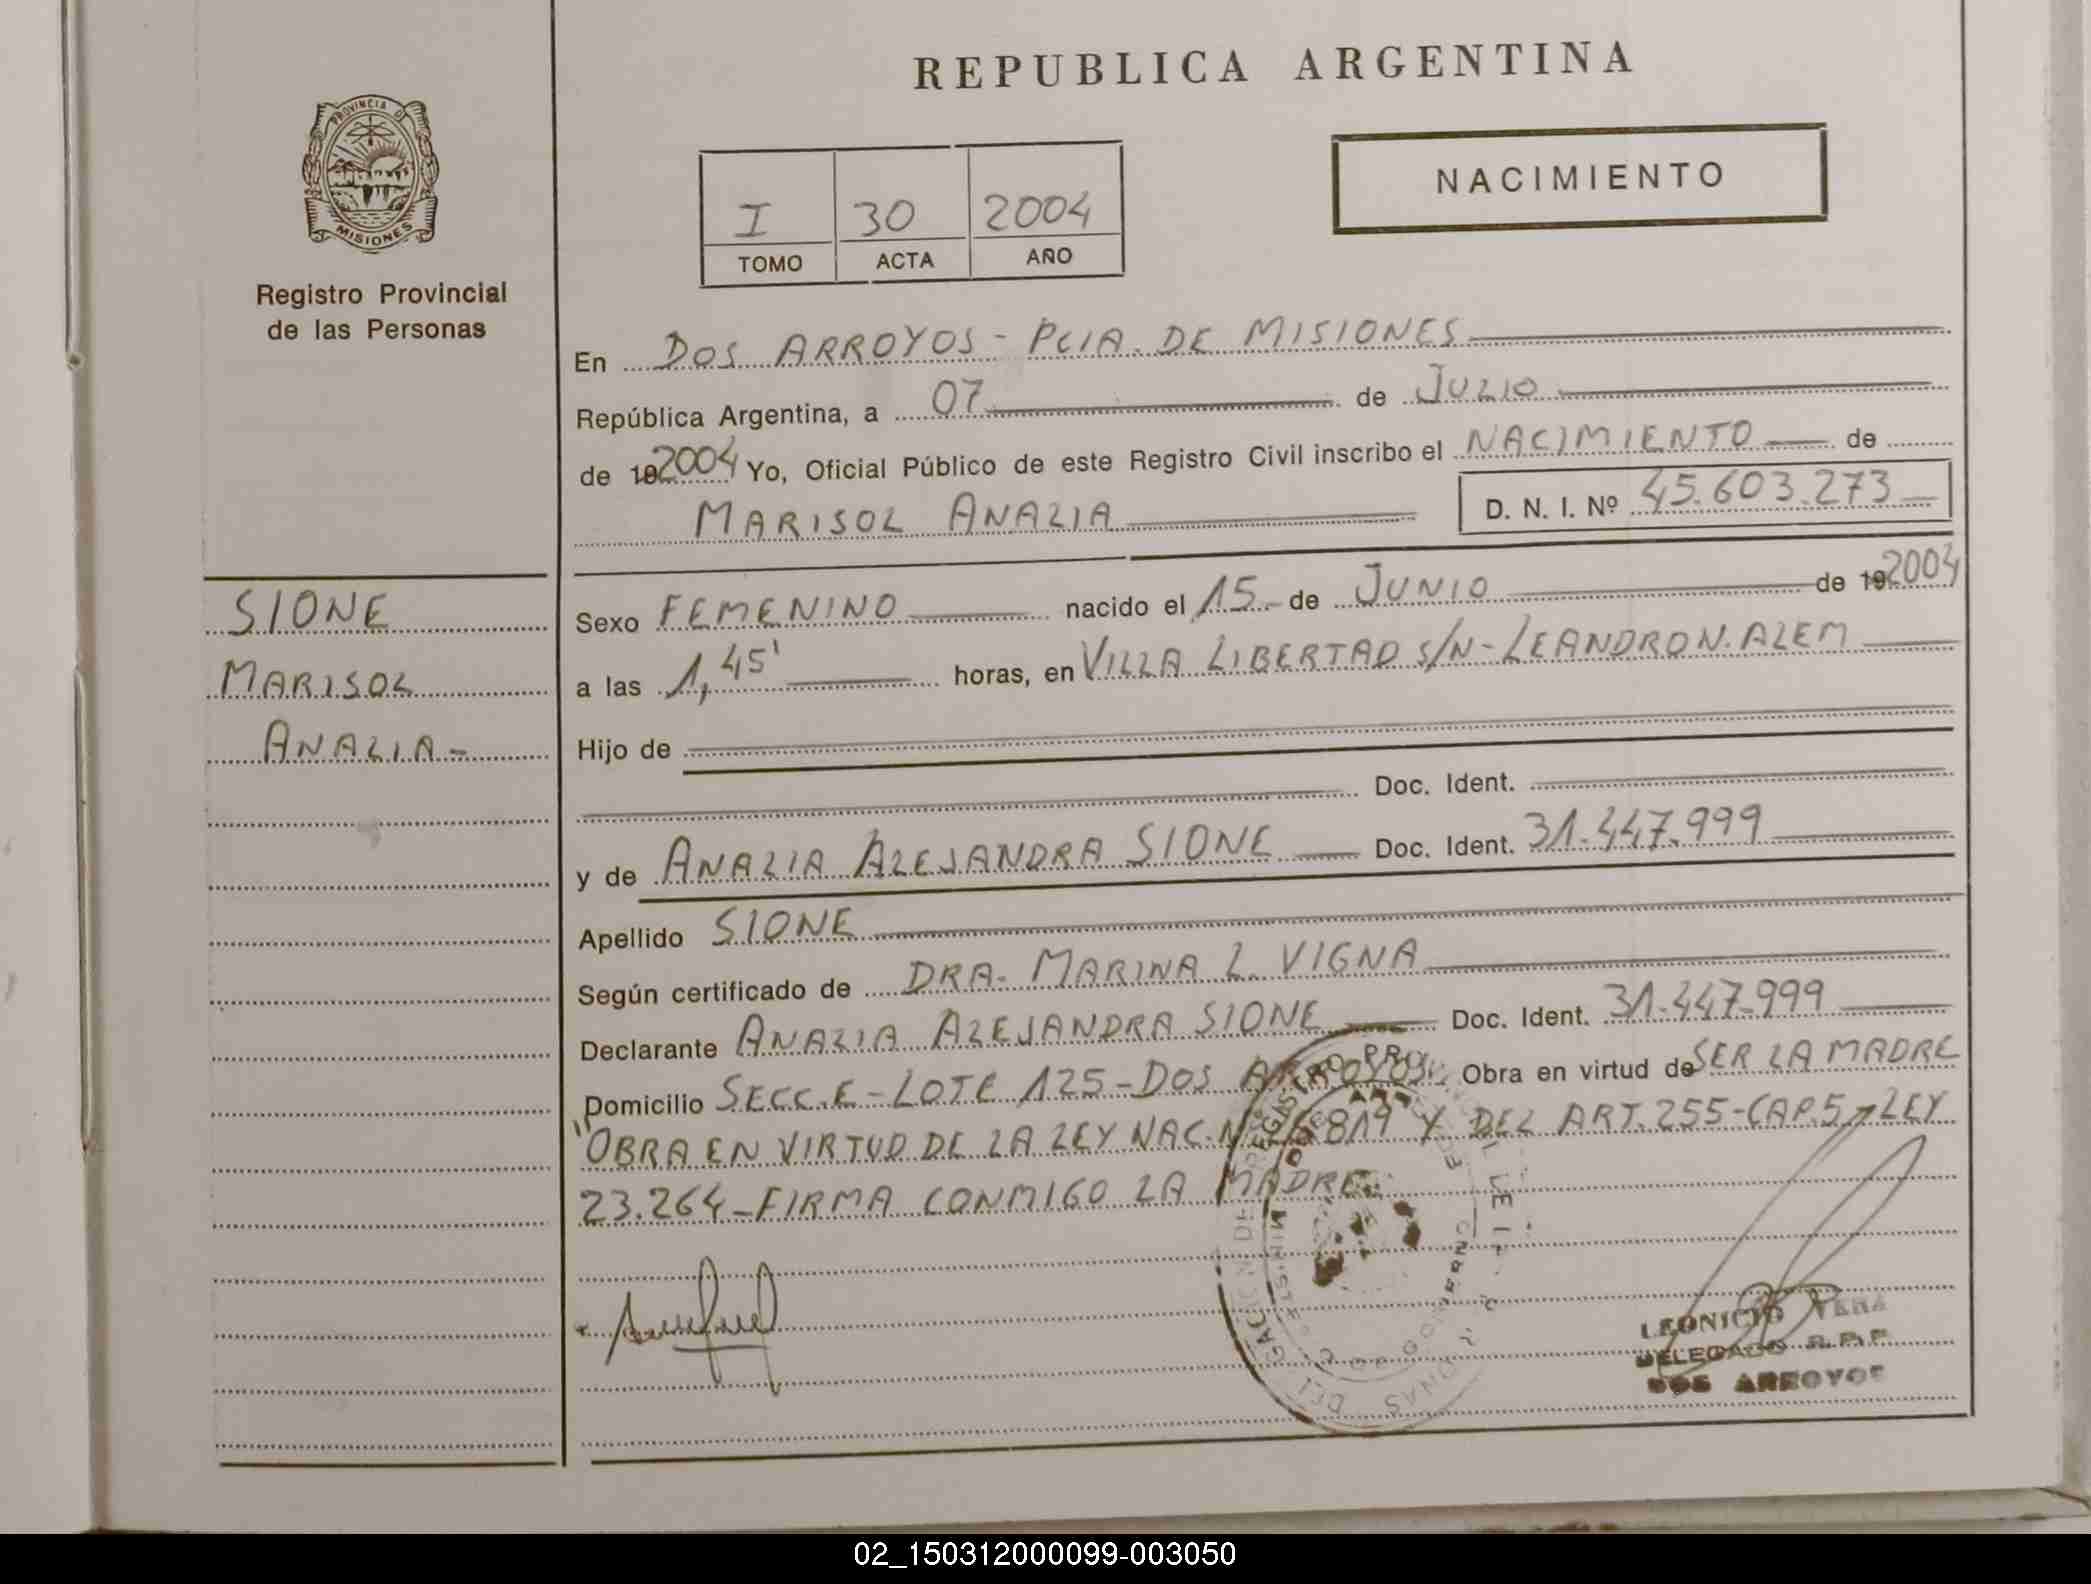 REPUBLICA ARGENTINA
PROVINCIA DE
MISIONES
Registro Provincial
de las Personas
NACIMIENTO
I 30 2004
TOMO ACTA AÑO
En DOS ARROYOS - PCIA. DE MISIONES
República Argentina, a 07 de JULIO
de 19 2004 Yo, Oficial Público de este Registro Civil inscribo el NACIMIENTO de
MARISOL ANALIA D. N. I. Nº 45.603.273
SIONE
MARISOL
ANALIA -
Sexo FEMENINO nacido el 15 - de JUNIO de 19 2004
a las 1,45' horas, en VILLA LIBERTAD S/N - LEANDRO N. ALEM
Hijo de
Doc. Ident.
y de ANALIA ALEJANDRA SIONE Doc. Ident. 31.447.999
Apellido SIONE
Según certificado de DRA. MARINA L. VIGNA
Declarante ANALIA ALEJANDRA SIONE Doc. Ident. 31.447.999
Domicilio SECC. E - LOTE 125 - DOS ARROYOS. Obra en virtud de SER LA MADRE
"OBRA EN VIRTUD DE LA LEY NAC. Nº 819 Y DEL ART. 255 - CAP. 5 - LEY
23.264 - FIRMA CONMIGO LA MADRE.
LEONICIO VERA
DELEGADO R.P.P.
DOS ARROYOS
02_150312000099-003050